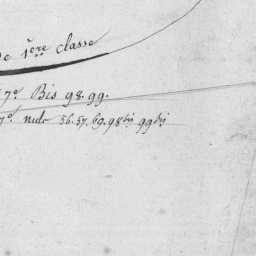 de 1ere classe
7° Bis 98.99.
7° nulc 56.57.69.98bis 99bis